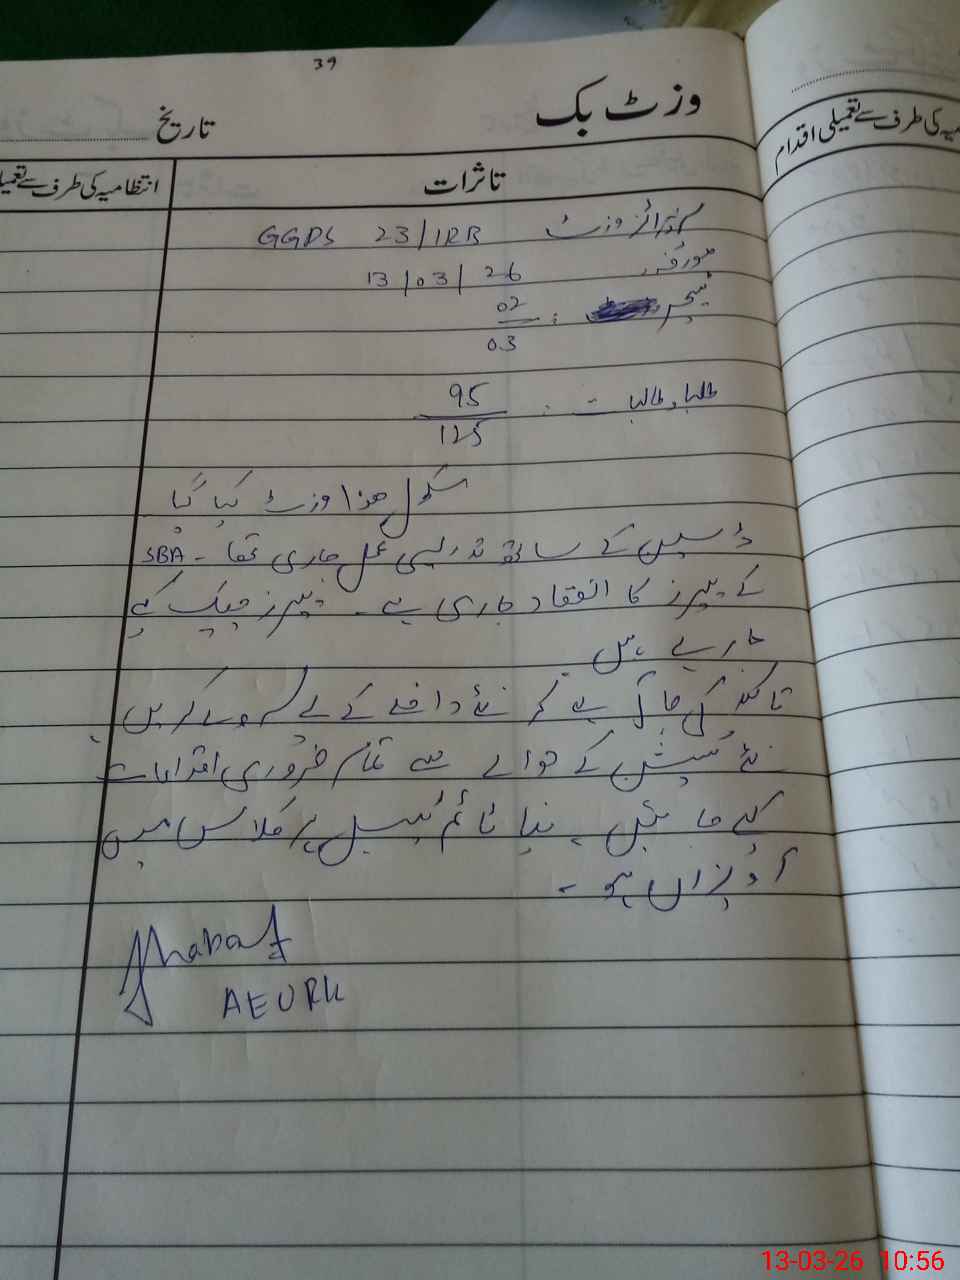 39
وزٹ بک
تاریخ
تاثرات
انتظامیہ کی طرف سے تعمیلی
میہ کی طرف سے تعمیلی اقدام
سرپرائز وزٹ GGPS 23/1RB
مورخہ 13/03/26
ٹیچرز : 02
03
طلبا و طالبات : 95
125
سکول ھذا وزٹ کیا گیا
ڈسپلن کے ساتھ تدریسی عمل جاری تھا - SBA
کے پیپرز کا انعقاد جاری ہے - پیپرز چیک کیے
جا رہے ہیں
تاکید کی جاتی ہے کہ نئے داخلے کے لیے سروے کریں
نئے سیشن کے حوالے سے تمام ضروری اقدامات
کیے جائیں - نیا ٹائم ٹیبل ہر کلاس میں
آویزاں ہو -
AEO RK
13-03-26 10:56